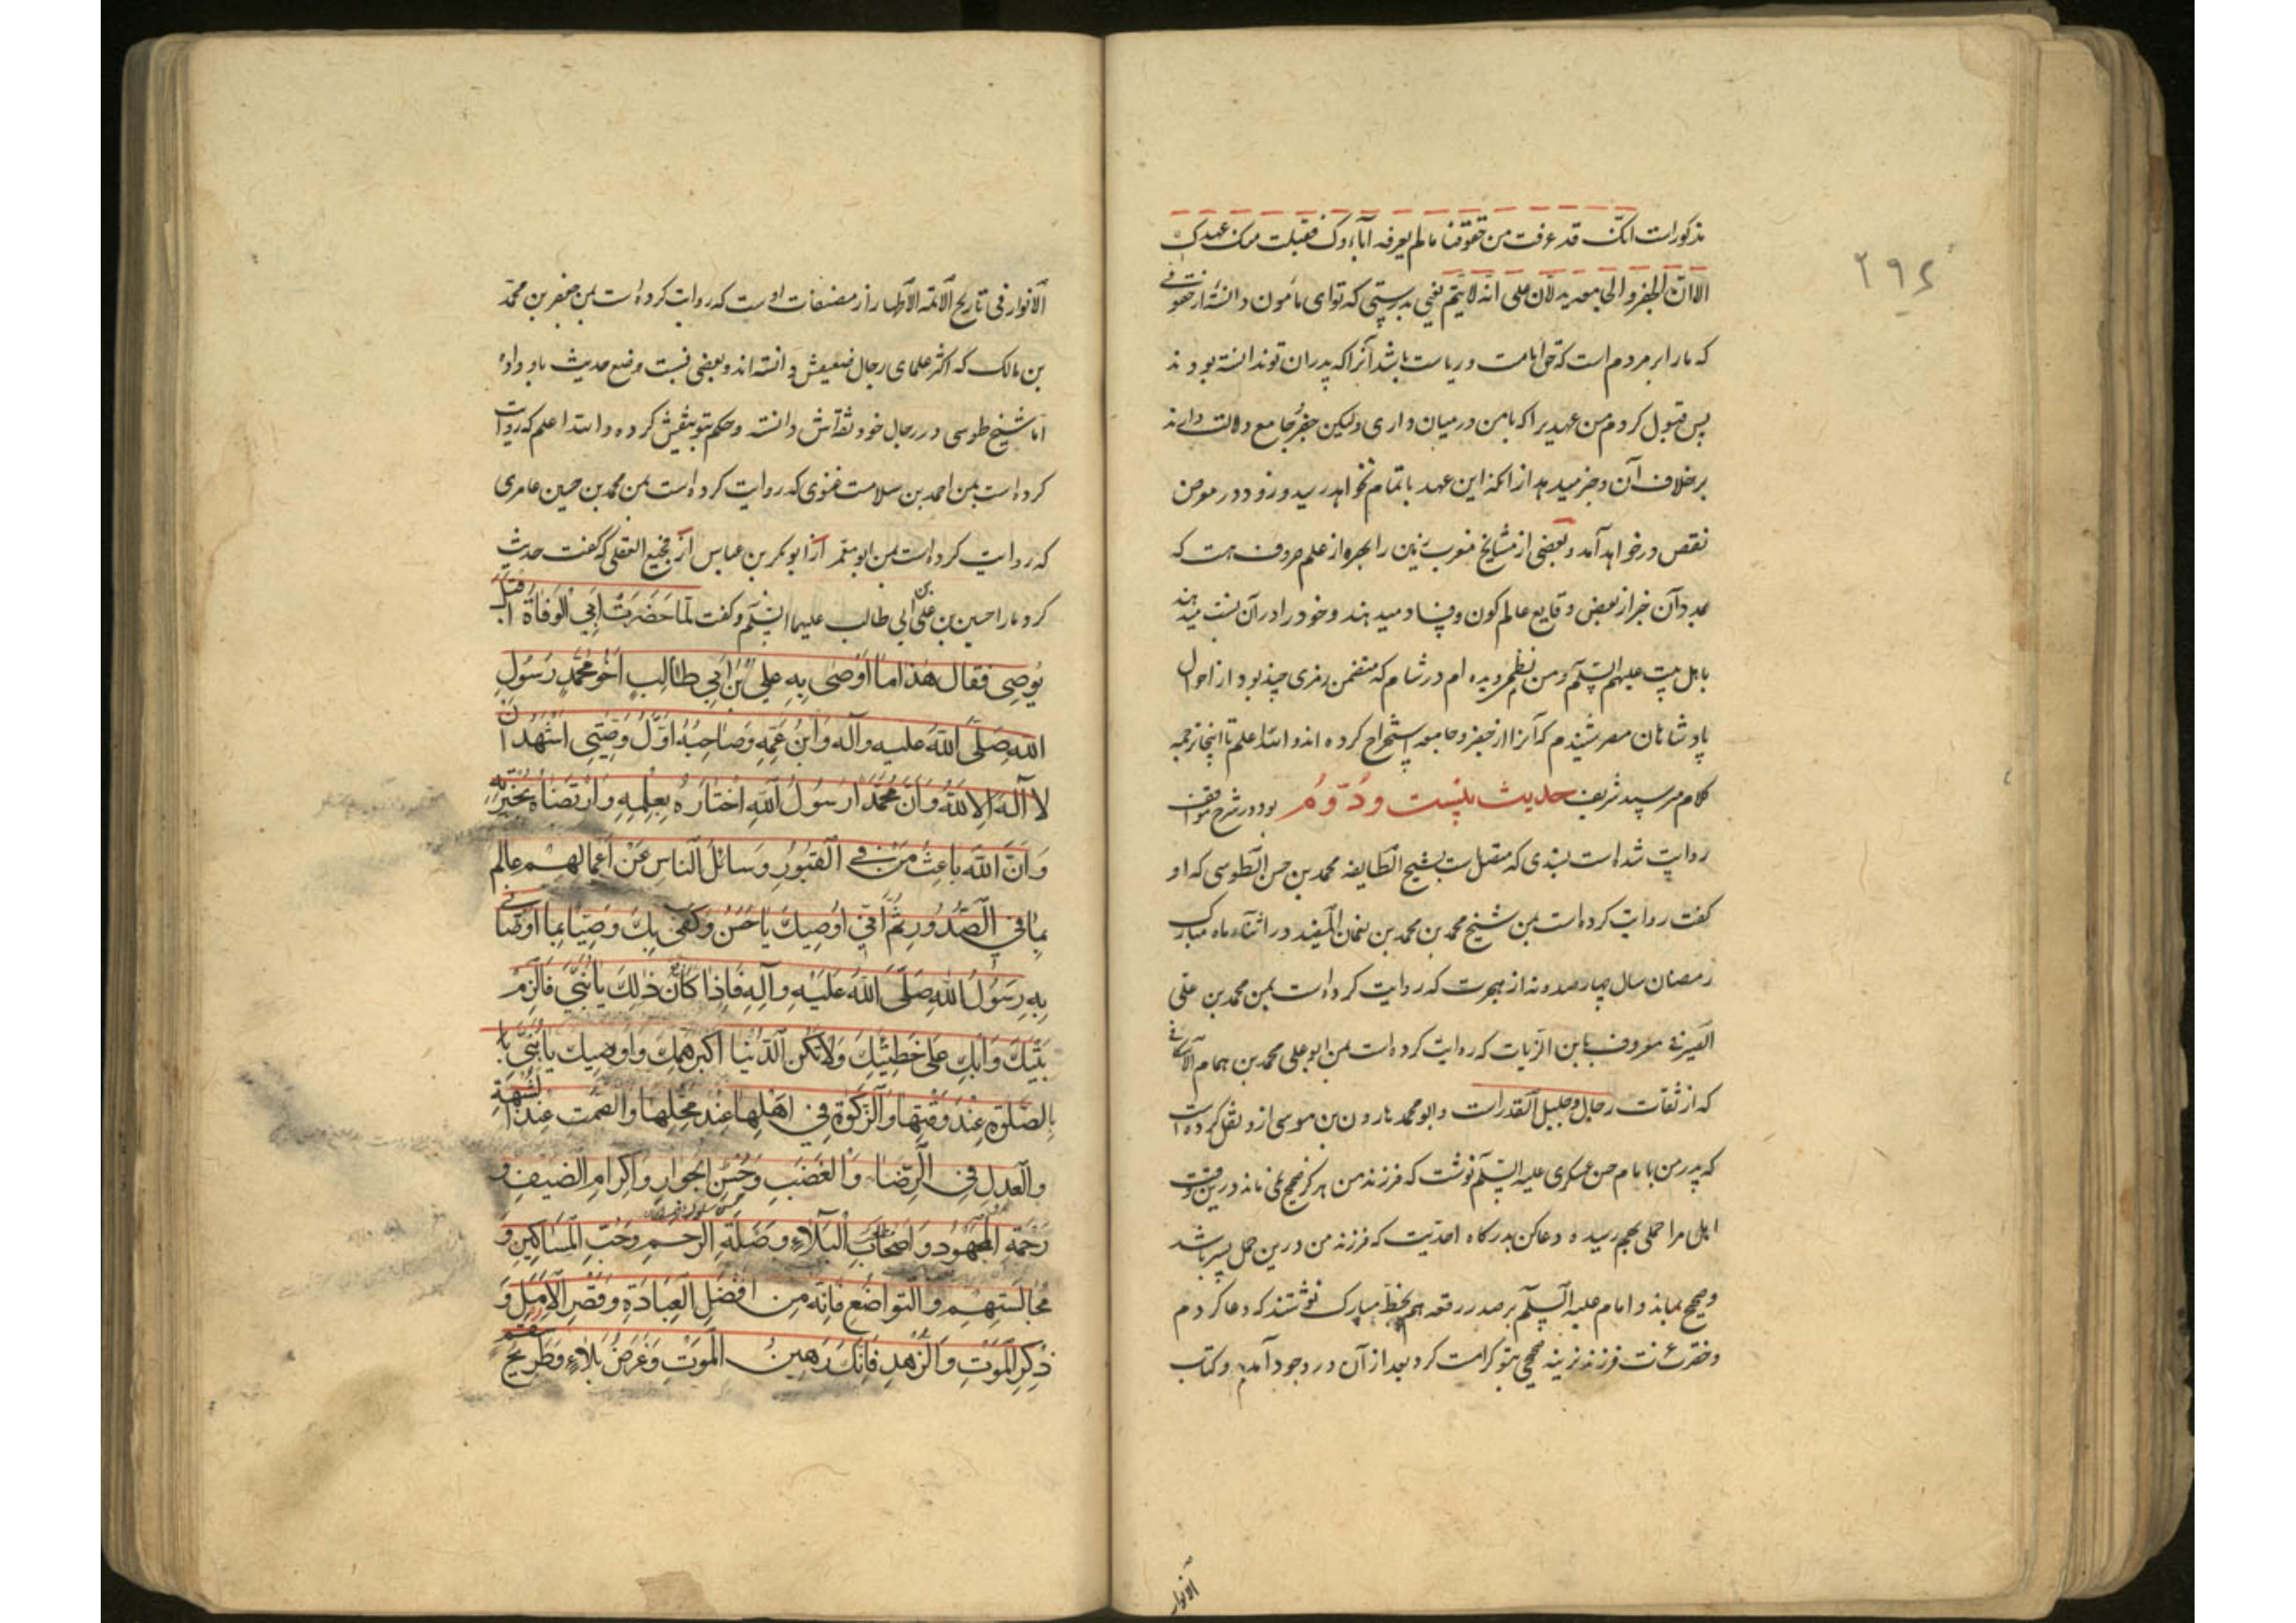 مذکورات انک قد عرفت من حقوقنا مالم یعرفه آباءوک فقبلت منک عهدک
الا ان الجفر والجامعه یدلان علی انه لا یتم یعنی بدرستی که توای مامون دانسته از حقوق
که مارا بر مردم است که حق امامت و ریاست باشد آنرا که پدران تو ندانسته بودند
پس قبول کردم من عهدیرا که با من در میان داری ولیکن جفر و جامع دلالت دارند
برخلاف آن و خبر میدهد از آنکه این عهد باتمام نخواهد رسید و زود در معرض
نقص درخواهد آمد و بعضی از مشایخ مغرب زمین را بهره از علم حروف هست که
بمدد آن خبر از بعض وقایع عالم کون و فساد میدهند و خود را در آن نسبت میدهند
باهل بیت علیهم السلام و من نظمی دیده ام در شام که متضمن رمزی چند بود از احوال
پادشاهان مصر شنیدم که آنرا از جفر و جامعه استخراج کرده اند والله اعلم تا اینجا ترجمه
کلام میر سید شریف بود در شرح مواقف حدیث بیست و دوم
روایت شده است بسندی که متصل است بشیخ الطایفه محمد بن حسن الطوسی که او
گفت روایت کرده است بمن شیخ محمد بن محمد بن نعمان المفید در اثناء ماه مبارک
رمضان سال چهارصد و نه از هجرت که روایت کرده است بمن محمد بن علی
الصیرفی معروف بابن الزیات که روایت کرده است بمن ابو علی محمد بن همام الاسکافی
که از ثقات رجال و جلیل القدر است و ابو محمد هارون بن موسی ازو نقل کرده است
که پدر من بامام حسن عسکری علیه السلام نوشت که فرزند من هرگز صحیح نمی ماند درین وقت
اهل مرا حملی بهم رسیده دعا کن بدرگاه احدیت که فرزند من درین حمل پسر باشد
و صحیح بماند و امام علیه السلام بر صدر رقعه هم بخط مبارک نوشتند که دعا کردم
و حضرت عزت فرزند نرینه صحیحی بتو کرامت کرد بعد از آن در وجود آمدم و کتاب
الانوار
۲۹۴
الانوار فی تاریخ الائمه الاطهار از مصنفات اوست که روایت کرده است بمن جعفر بن محمد
بن مالک که اکثر علمای رجال ضعیفش دانسته اند و بعضی نسبت وضع حدیث باو داده
اما شیخ طوسی در رجال خود ثقه اش دانسته و حکم بتوثیقش کرده والله اعلم که روایت
کرده است بمن احمد بن سلامت غنوی که روایت کرده است بمن محمد بن حسین عامری
که روایت کرده است بمن ابو معمر از ابو بکر بن عیاش از فجیع العقلی که گفت حدیث
کرد مارا حسین بن علی بن ابی طالب علیهما السلام و گفت لَمّا حَضَرَتْ اَبِی الْوَفاةُ اَقْبَلَ
یُوصی فَقالَ هٰذا ما اَوْصٰی بِهِ عَلیُّ بْنُ اَبی طالِبٍ اَخُو مُحَمَّدٍ رَسُولِ
اللهِ صَلَّی اللهُ عَلَیهِ وَآلِه وَابْنُ عَمِّهِ وَصاحِبُهُ اَوَّلُ وَصِیَّتی اَشْهَدُ اَن
لا اِلهَ اِلَّا اللهُ وَاَنَّ مُحَمَّدًا رَسُولُ اللهِ اخْتارَهُ بِعِلْمِهِ وَارْتَضاهُ بِخِیَرَتِهِ
وَاَنَّ اللهَ باعِثُ مَنْ فِی الْقُبُورِ وَسائِلُ النّاسِ عَنْ اَعْمالِهِمْ عالِم
بِما فی الصُّدُورِ ثُمَّ اِنّی اُوصیکَ یا حَسَنُ وَکَفٰی بِکَ وَصِیًّا بِما اَوْصانی
بِهِ رَسُولُ اللهِ صَلَّی اللهُ عَلَیْهِ وَآلِهِ فَاِذا کانَ ذٰلِکَ یا بُنَیَّ فَالْزَمْ
بَیْتَکَ وَابْکِ عَلٰی خَطیئَتِکَ وَلا تَکُنِ الدُّنْیا اَکْبَرَ هَمِّکَ وَاُوصیکَ یا بُنَیَّ
بِالصَّلٰوةِ عِنْدَ وَقْتِها وَالزَّکٰوةِ فی اَهْلِها عِنْدَ مَحَلِّها وَالصَّمْتِ عِنْدَ الشُّبْهَةِ
وَالْعَدْلِ فِی الرِّضا وَالْغَضَبِ وَحُسْنِ الْجِوارِ وَاِکْرامِ الضَّیْفِ وَ
رَحْمَةِ الْمَجْهُودِ وَاَصْحابِ الْبَلاءِ وَصِلَةِ الرَّحِمِ وَحُبِّ الْمَساکینِ وَ
مُجالَسَتِهِمْ وَالتَّواضُعِ فَاِنَّهُ مِنْ اَفْضَلِ الْعِبادَةِ وَقَصْرِ الْاَمَلِ وَ
ذِکْرِ الْمَوْتِ وَالزُّهْدِ فَاِنَّکَ رَهینُ الْمَوْتِ وَغَرَضُ بَلاءٍ وَطَریحُ سقم